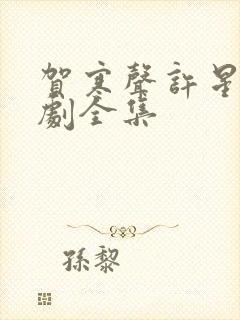 賀寒聲許星
劇全集
孫黎